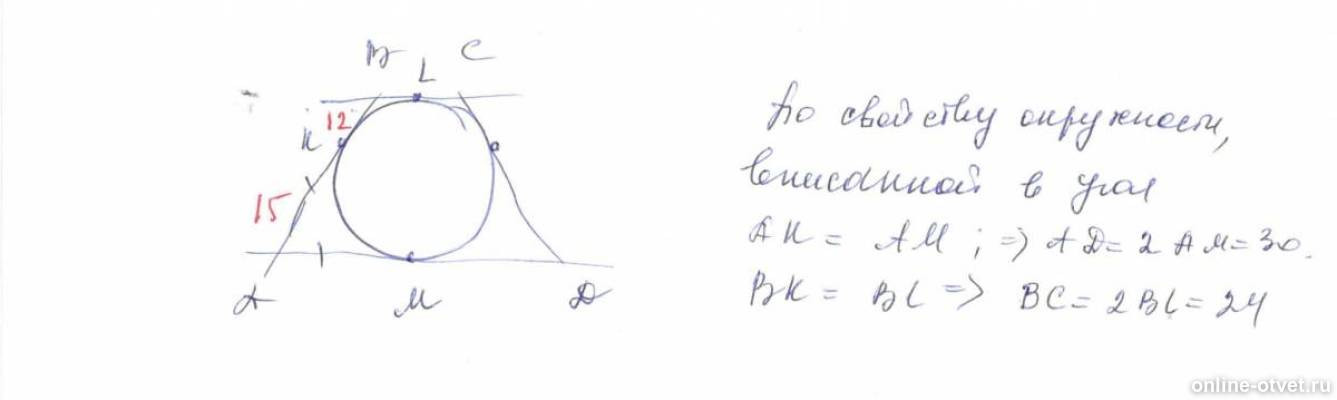 B L C
K 12
15
A M D
По свойству окружности,
вписанной в угол
AK = AM ; => AD = 2 AM = 30.
BK = BL => BC = 2BL = 24
online-otvet.ru